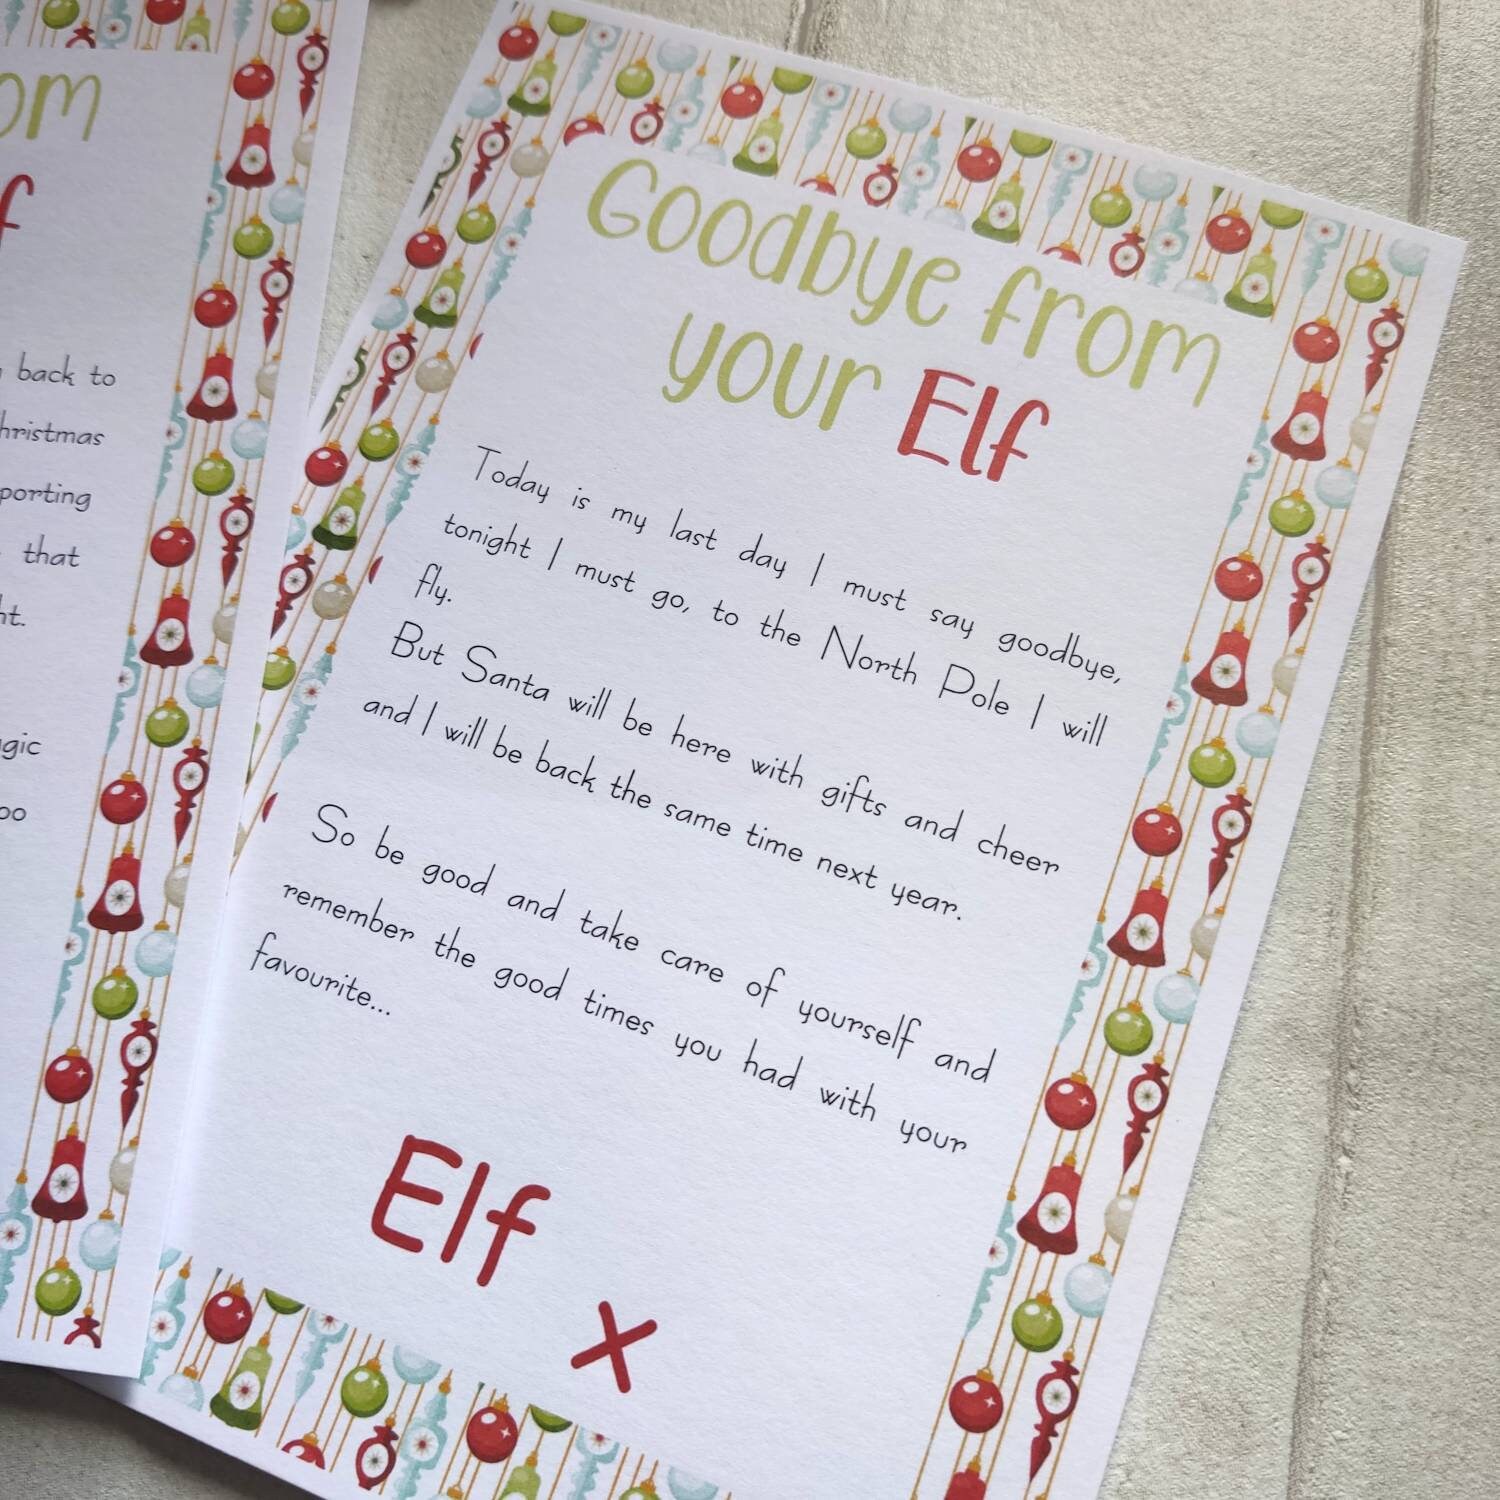 om
f
back to
hristmas
porting
that
ht.
gic
oo
Goodbye from
your Elf
Today is my last day I must say goodbye,
tonight I must go, to the North Pole I will
fly.
But Santa will be here with gifts and cheer
and I will be back the same time next year.
So be good and take care of yourself and
remember the good times you had with your
favourite...
Elf
x